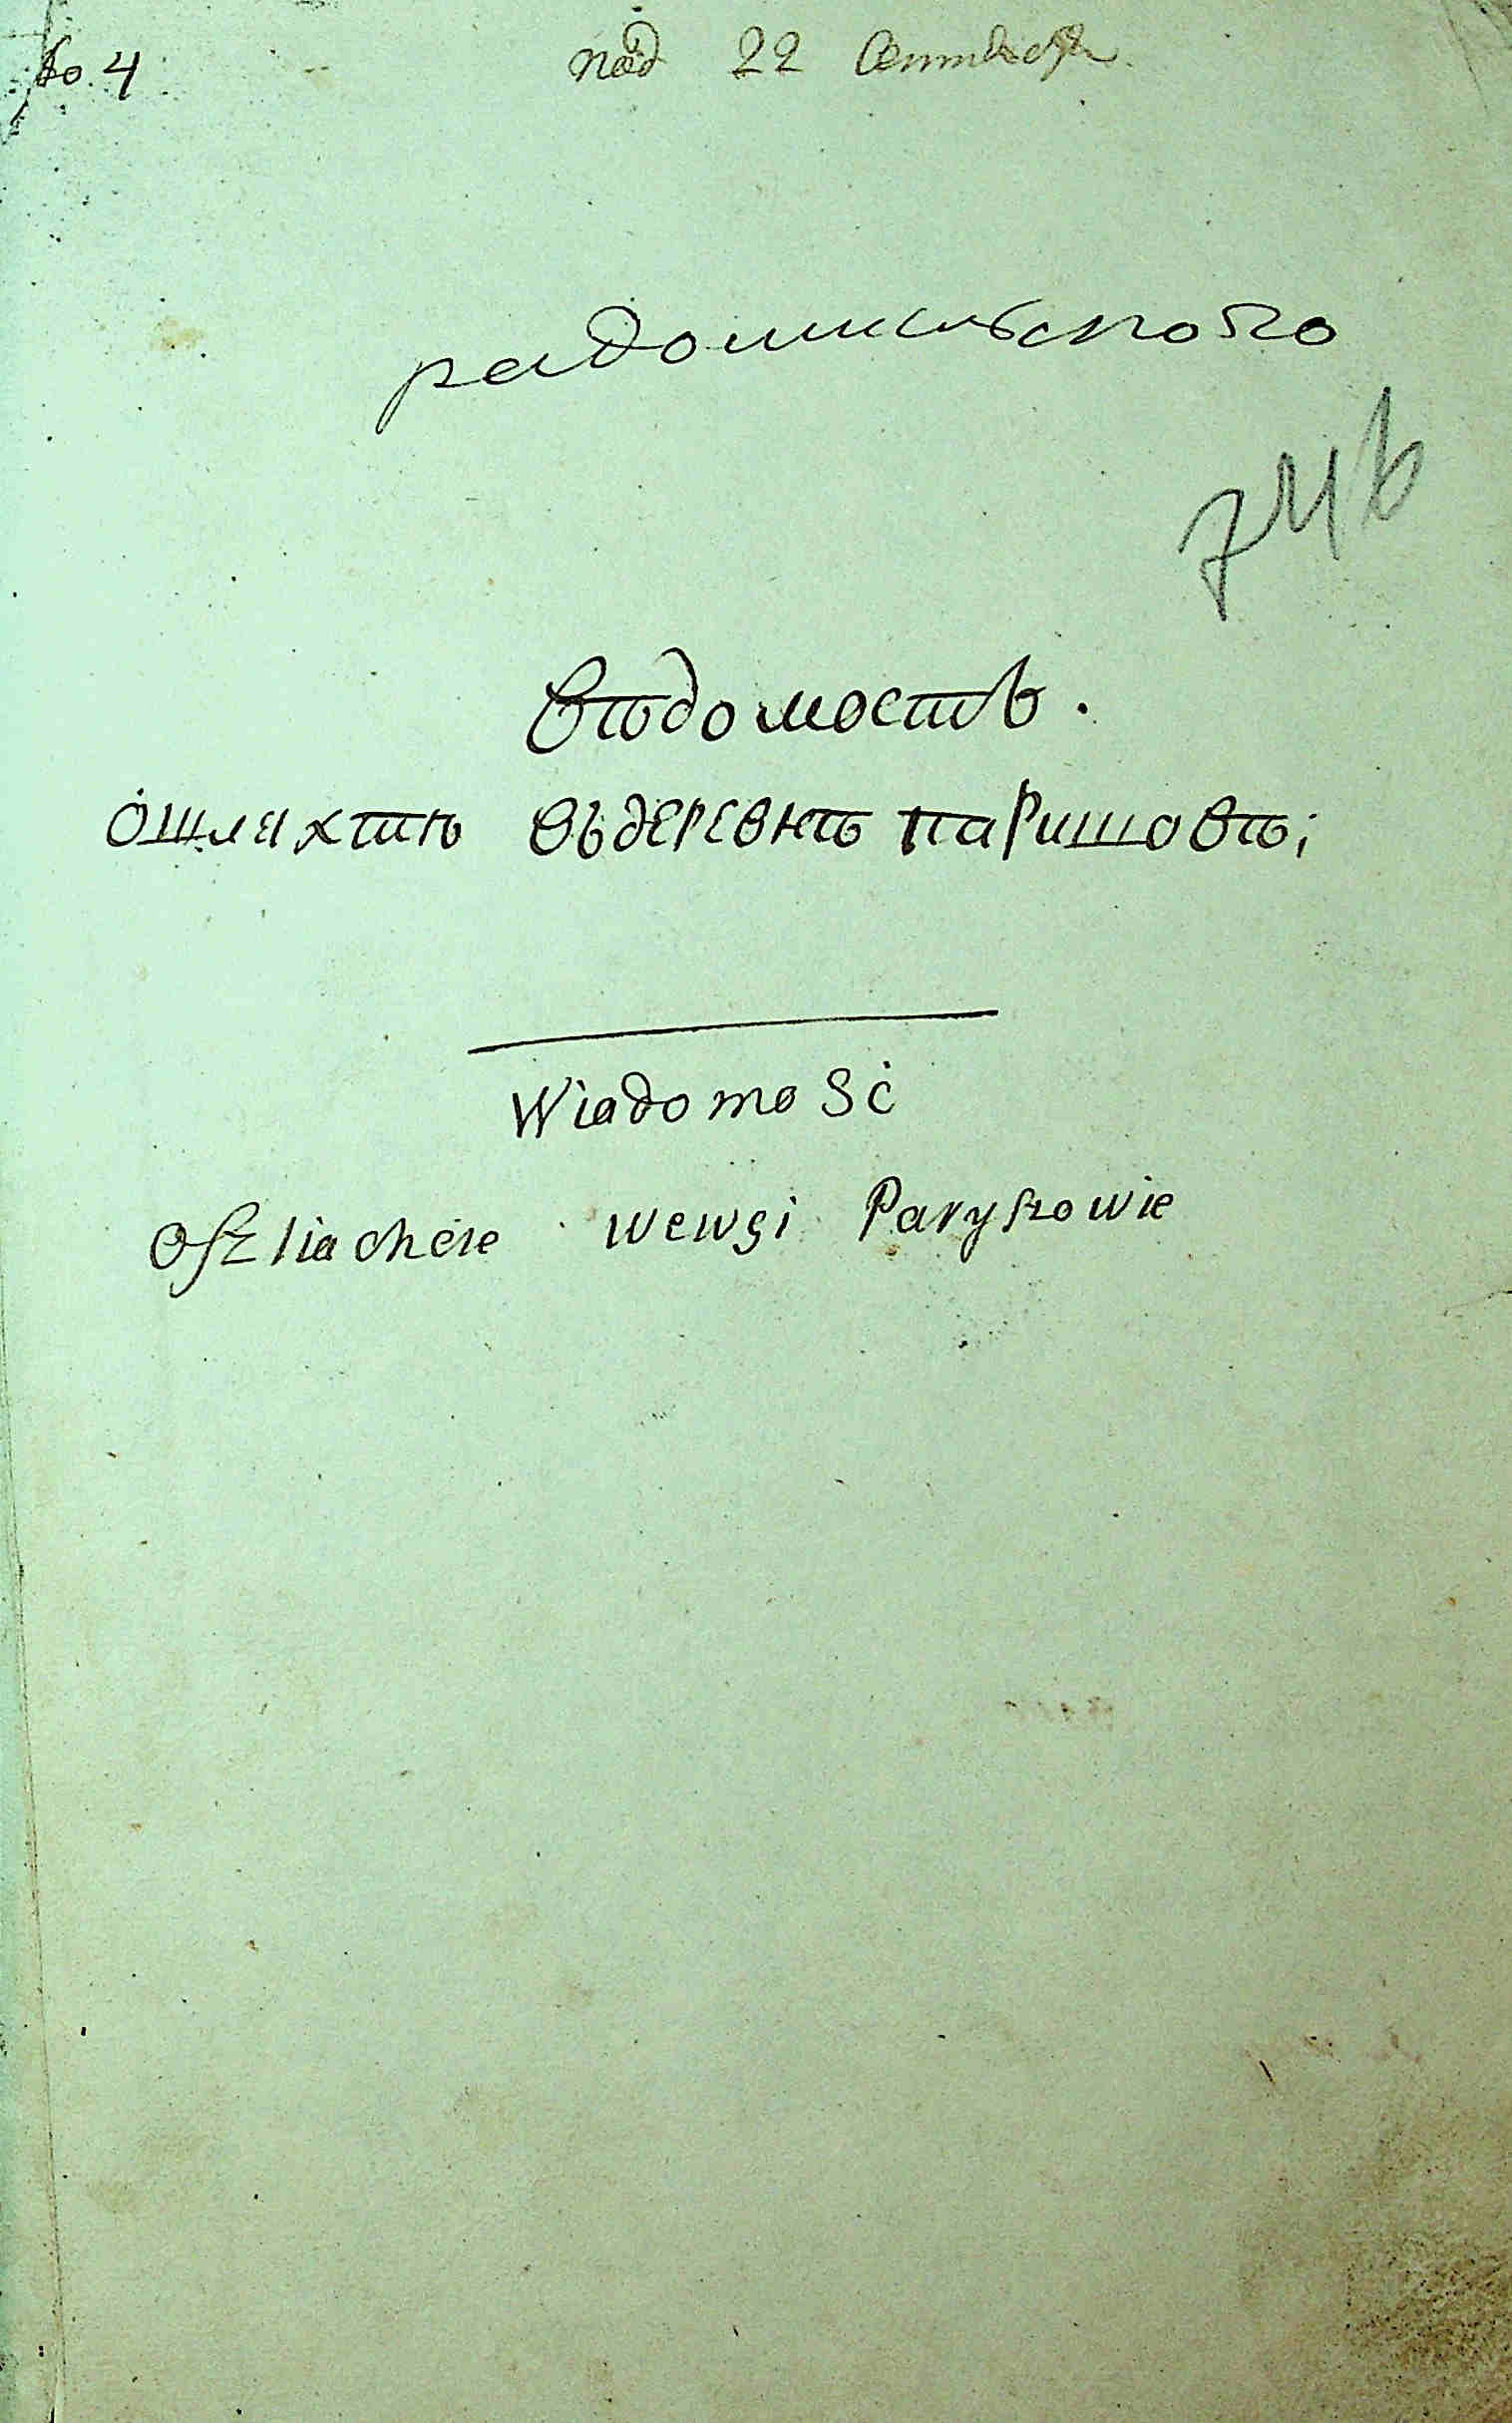 № 4
под 22 Сентября
радомисльского
746
вѣдомость.
ошляхтѣ въдеревнѣ паришовѣ;
WiadomoSć
Oſzliachcie wewsi Paryſzowie